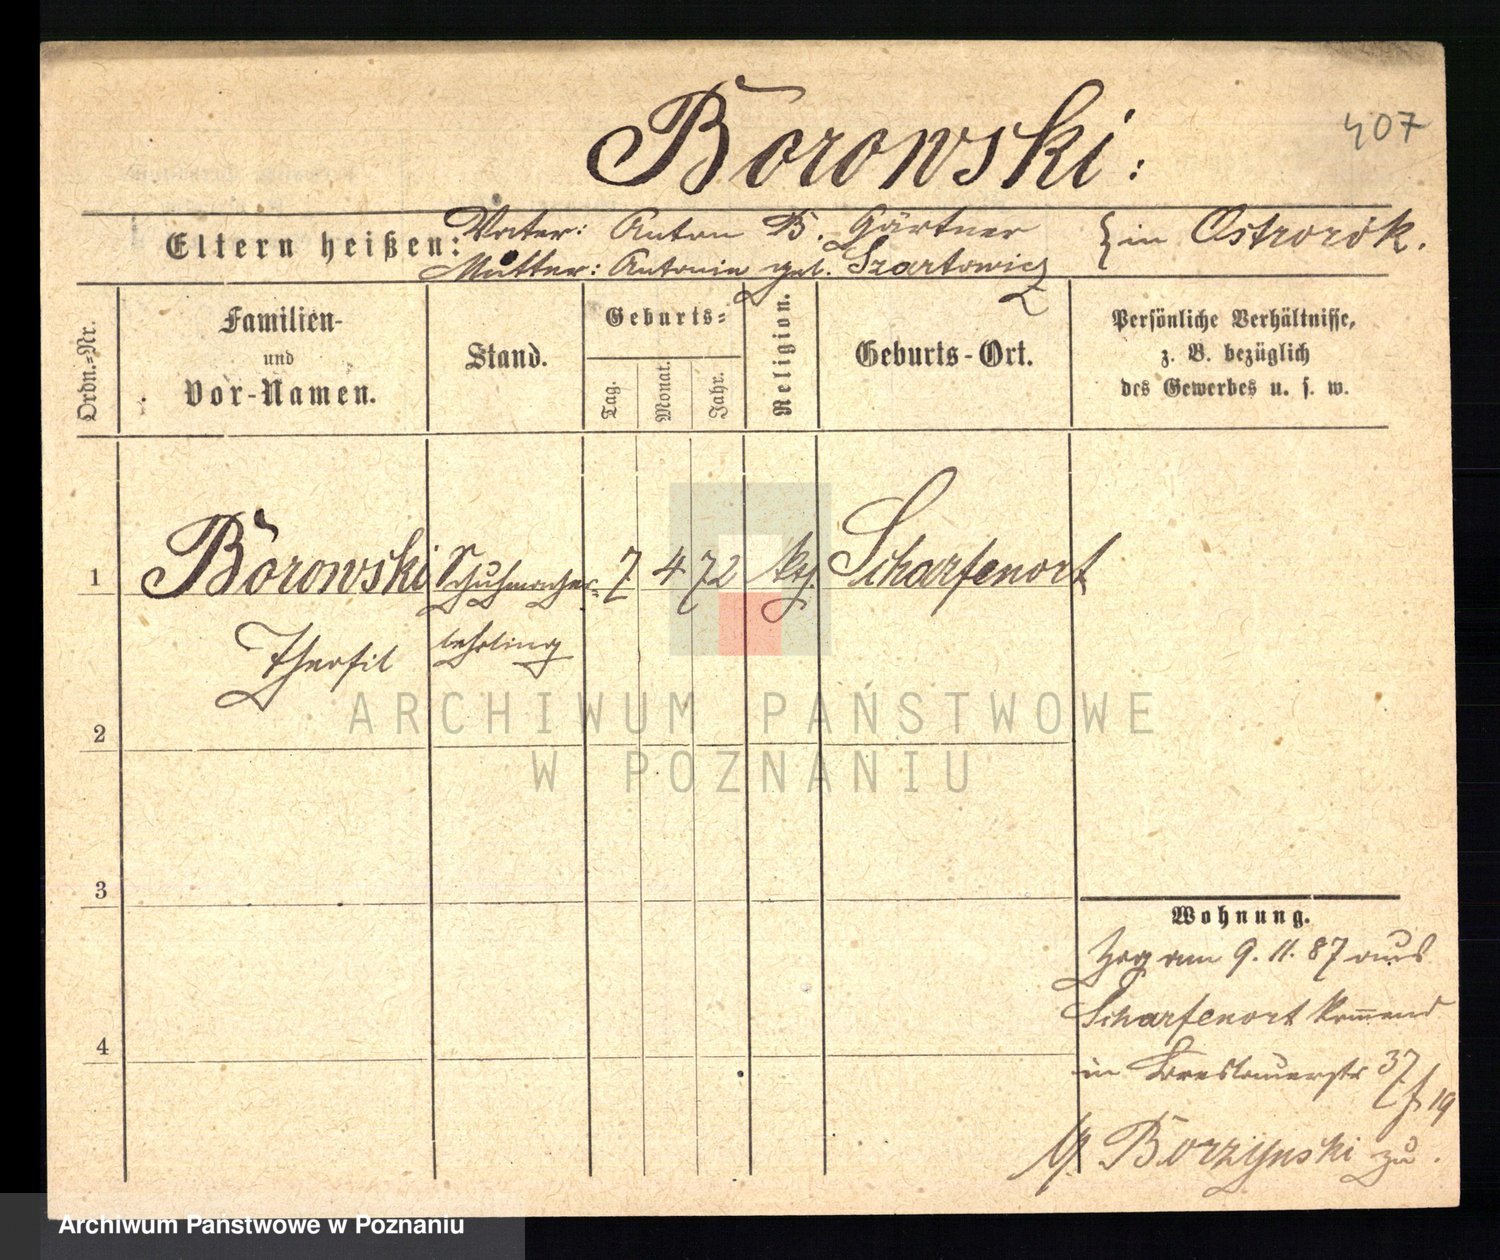 407
Borowski:
Eltern heißen:
Vater: Anton B. Gärtner
Mutter: Antonie geb. Szartowicz
} in Ostrorók.
Ordn.-Nr.
Familien-
und
Vor-Namen.
Stand.
Geburts-
Tag.
Monat.
Jahr.
Religion.
Geburts-Ort.
Persönliche Verhältnisse,
z. B. bezüglich
des Gewerbes u. s. w.
1
Borowski Schuhmacher- 7 4 72 kth. Scharfenort
lehrling
2
3
4
Wohnung.
Zog am 9. 11. 87 aus
Scharfenort kommend
in Breslauerstr 37
19
Borzynski zu.
ARCHIWUM PAŃSTWOWE
W POZNANIU
Archiwum Państwowe w Poznaniu